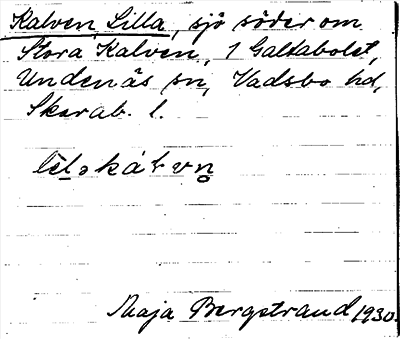 Kalven, Lilla, sjö söder om
Stora Kalven, 1 Galtabolet,
Undenäs sn, Vadsbo hd,
Skarab. l.
Maja Bergstrand 1930.